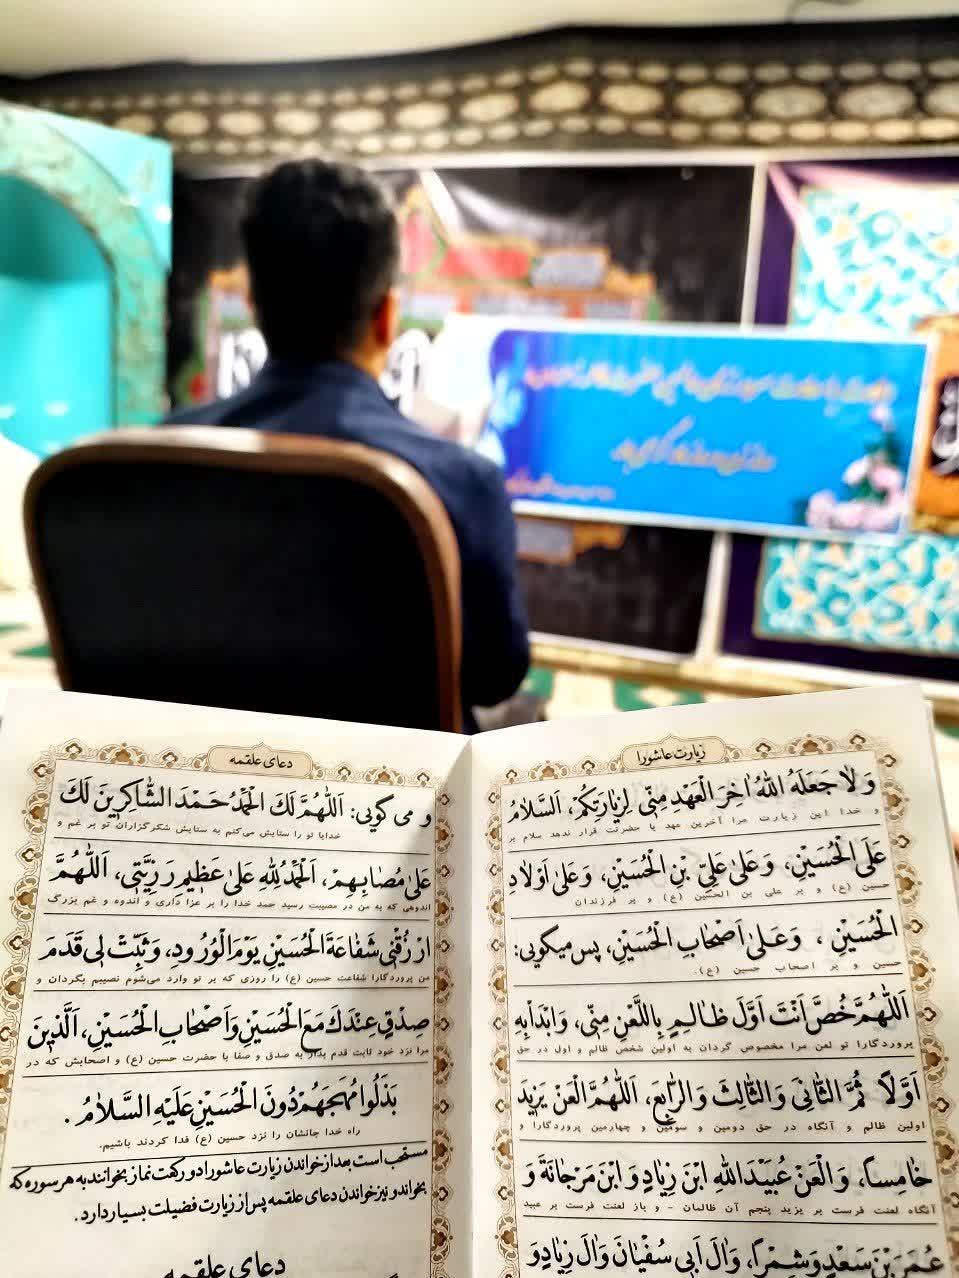 زیارت عاشورا
وَلاٰ جَعَلَهُ اللّٰهُ اٰخِرَ الْعَهْدِ مِنّٖی لِزِیٰارَتِکُمْ، اَلسَّلاٰمُ
و خدا این زیارت مرا آخرین عهد با حضرتت قرار ندهد سلام بر
عَلَی الْحُسَیْنِ، وَعَلیٰ عَلِیِّ بْنِ الْحُسَیْنِ، وَعَلیٰ اَوْلاٰدِ
حسین (ع) و بر علی بن الحسین (ع) و بر فرزندان
الْحُسَیْنِ ، وَعَلیٰ اَصْحٰابِ الْحُسَیْنِ، پس میگویی:
حسین و بر اصحاب حسین (ع).
اَللّٰهُمَّ خُصَّ اَنْتَ اَوَّلَ ظٰالِمٍ بِاللَّعْنِ مِنّٖی، وَابْدَأْبِهِ
پروردگارا تو لعن مرا مخصوص گردان به اولین شخص ظالم و اول در حق
اَوَّلاً ثُمَّ الثّٰانِیَ وَالثّٰالِثَ وَالرّٰابِعَ، اَللّٰهُمَّ الْعَنْ یَزٖیدَ
اولین ظالم و آنگاه در حق دومین و سومین و چهارمین پروردگارا و
خٰامِسًا، وَالْعَنْ عُبَیْدَ اللّٰهِ ابْنَ زِیٰادٍ وَابْنَ مَرْجٰانَةَ وَ
آنگاه لعنت فرست بر یزید پنجم آن ظالمان - و باز لعنت فرست بر عبید
عُمَرَ بْنَ سَعْدٍ وَشِمْرًا، وَاٰلَ اَبٖی سُفْیٰانَ وَاٰلَ زِیٰادٍ وَ
دعای علقمه
و می گویی: اَللّٰهُمَّ لَکَ الْحَمْدُ حَمْدَ الشّٰاکِرٖینَ لَکَ
خدایا تو را ستایش می‌کنم به ستایش شکرگزاران تو بر غم و
عَلیٰ مُصٰابِهِمْ، اَلْحَمْدُ لِلّٰهِ عَلیٰ عَظٖیمِ رَزِیَّتٖی، اَللّٰهُمَّ
اندوهی که به من در مصیبت رسید حمد خدا را بر عزا داری و اندوه و غم بزرگ
ارْزُقْنٖی شَفٰاعَةَ الْحُسَیْنِ یَوْمَ الْوُرُودِ، وَثَبِّتْ لٖی قَدَمَ
من پروردگارا شفاعت حسین (ع) را روزی که بر تو وارد می‌شوم نصیبم بگردان و
صِدْقٍ عِنْدَکَ مَعَ الْحُسَیْنِ وَاَصْحٰابِ الْحُسَیْنِ، اَلَّذٖینَ
مرا نزد خود ثابت قدم بدار به صدق و صفا با حضرت حسین (ع) و اصحابش که در
بَذَلُوا مُهَجَهُمْ دُونَ الْحُسَیْنِ عَلَیْهِ السَّلاٰمُ .
راه خدا جانشان را نزد حسین (ع) فدا کردند باشیم.
مستحب است بعد از خواندن زیارت عاشورا دو رکعت نماز بخوانند به هر سوره که
بخواند و نیز خواندن دعای علقمه پس از زیارت فضیلت بسیار دارد.
دعای علقمه